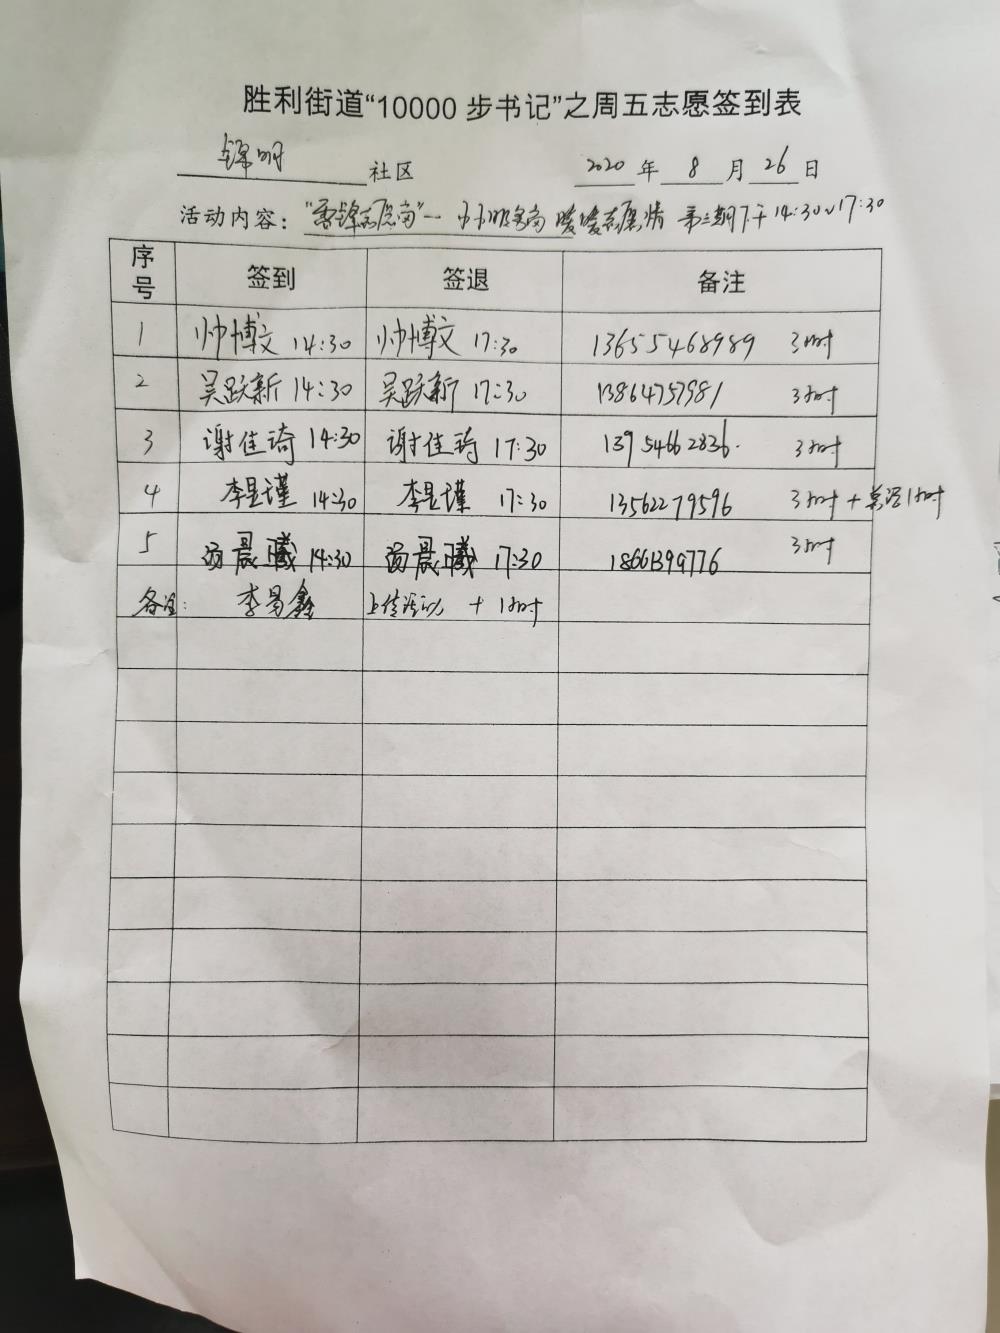 胜利街道“10000步书记”之周五志愿签到表
锦明 社区 2020 年 8 月 26 日
活动内容：“雷锋志愿岗”— 小小服务岗 暖暖志愿情 第三期下午14:30~17:30
序号 签到 签退 备注
1 帅博文 14:30 帅博文 17:30 13655468989 3小时
2 吴跃新 14:30 吴跃新 17:30 13864757981 3小时
3 谢佳琦 14:30 谢佳琦 17:30 13954662836. 3小时
4 李昱瑾 14:30 李昱瑾 17:30 13562279596 3小时+ 1小时
5 晨曦 14:30 晨曦 17:30 18661399776 3小时
备注： 李易鑫 上传活动 + 1小时